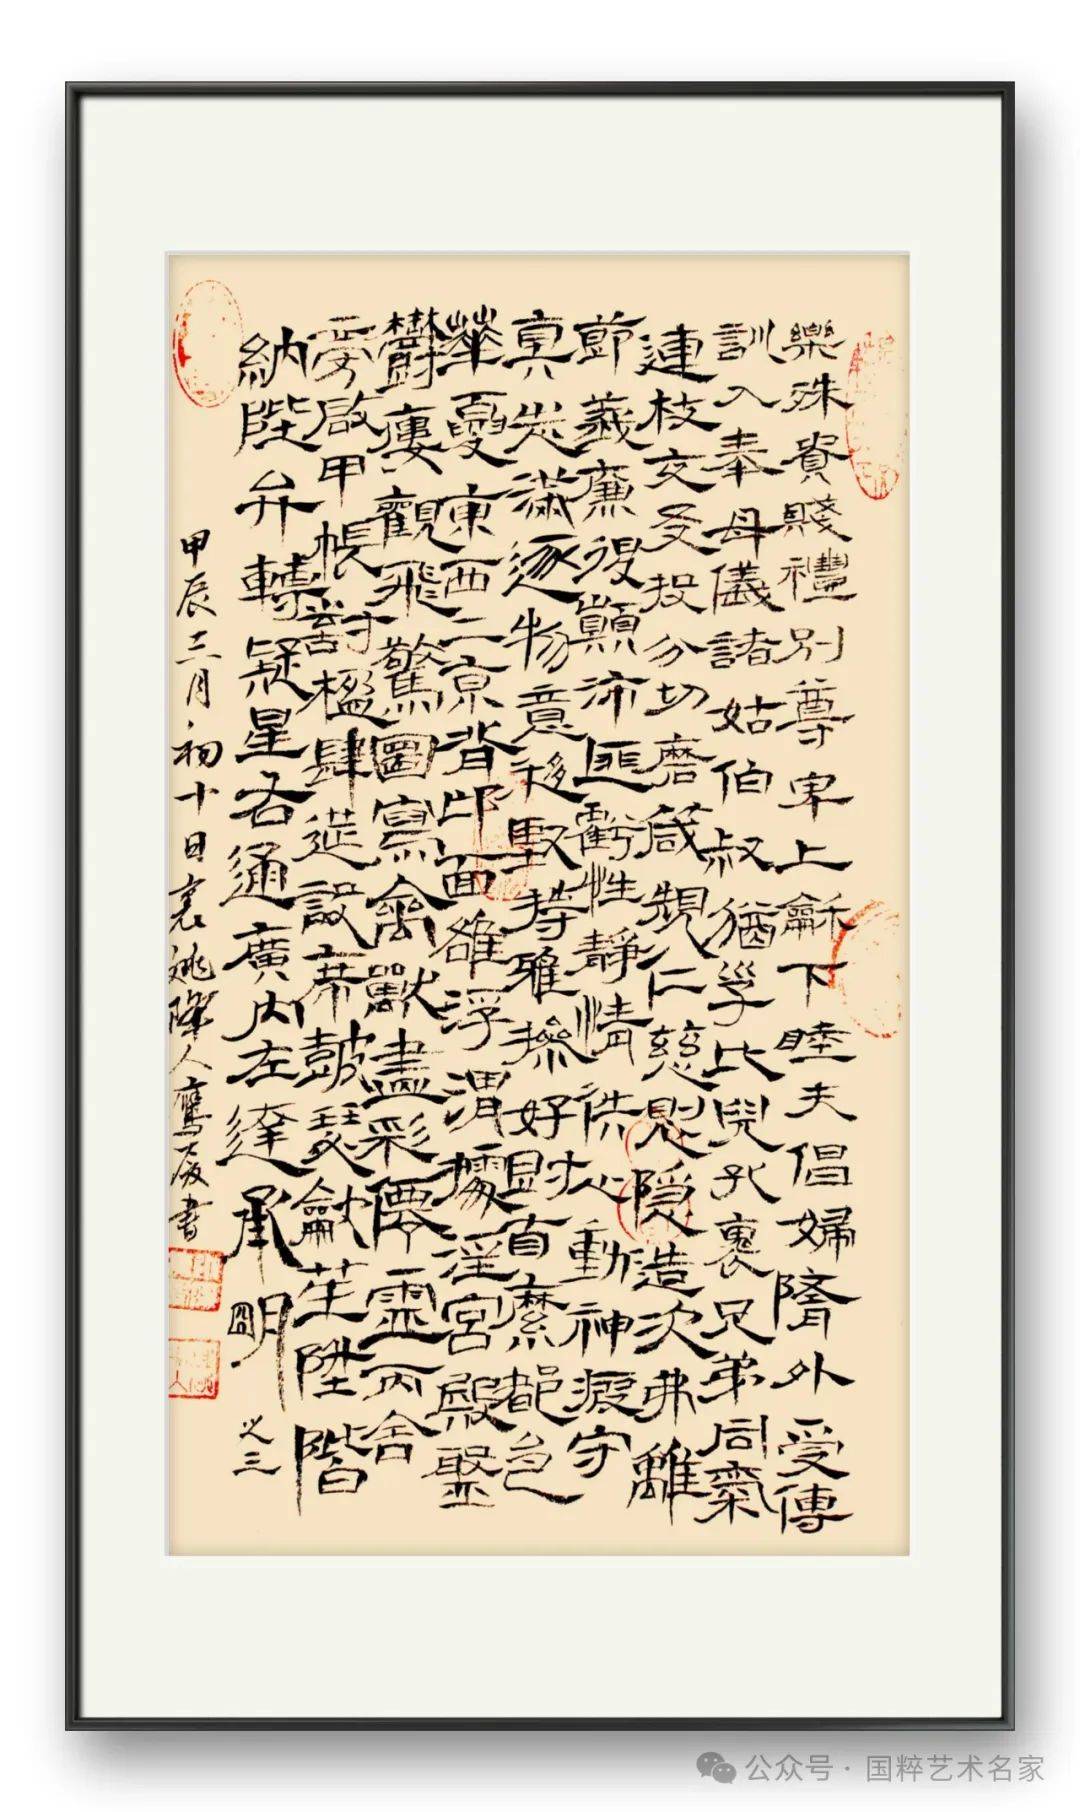 樂殊貴賤禮別尊卑上龢下睦夫倡婦隨外受傅
訓入奉母儀諸姑伯叔猶子比兒孔懷兄弟同氣
連枝交友投分切磨箴規仁慈惻隱造次弗離
節義廉退顛沛匪虧性靜情逸心動神疲守
真志滿逐物意移堅持雅操好爵自縻都邑
華夏東西二京背邙面雒浮渭據涇宮殿盤
鬱樓觀飛驚圖寫禽獸畫彩僊靈丙舍
旁啟甲帳對楹肆筵設席鼓瑟龡笙陞階
納陛弁轉疑星右通廣內左達承明 之三
甲辰三月初十日 人鷹 書
公众号·国粹艺术名家